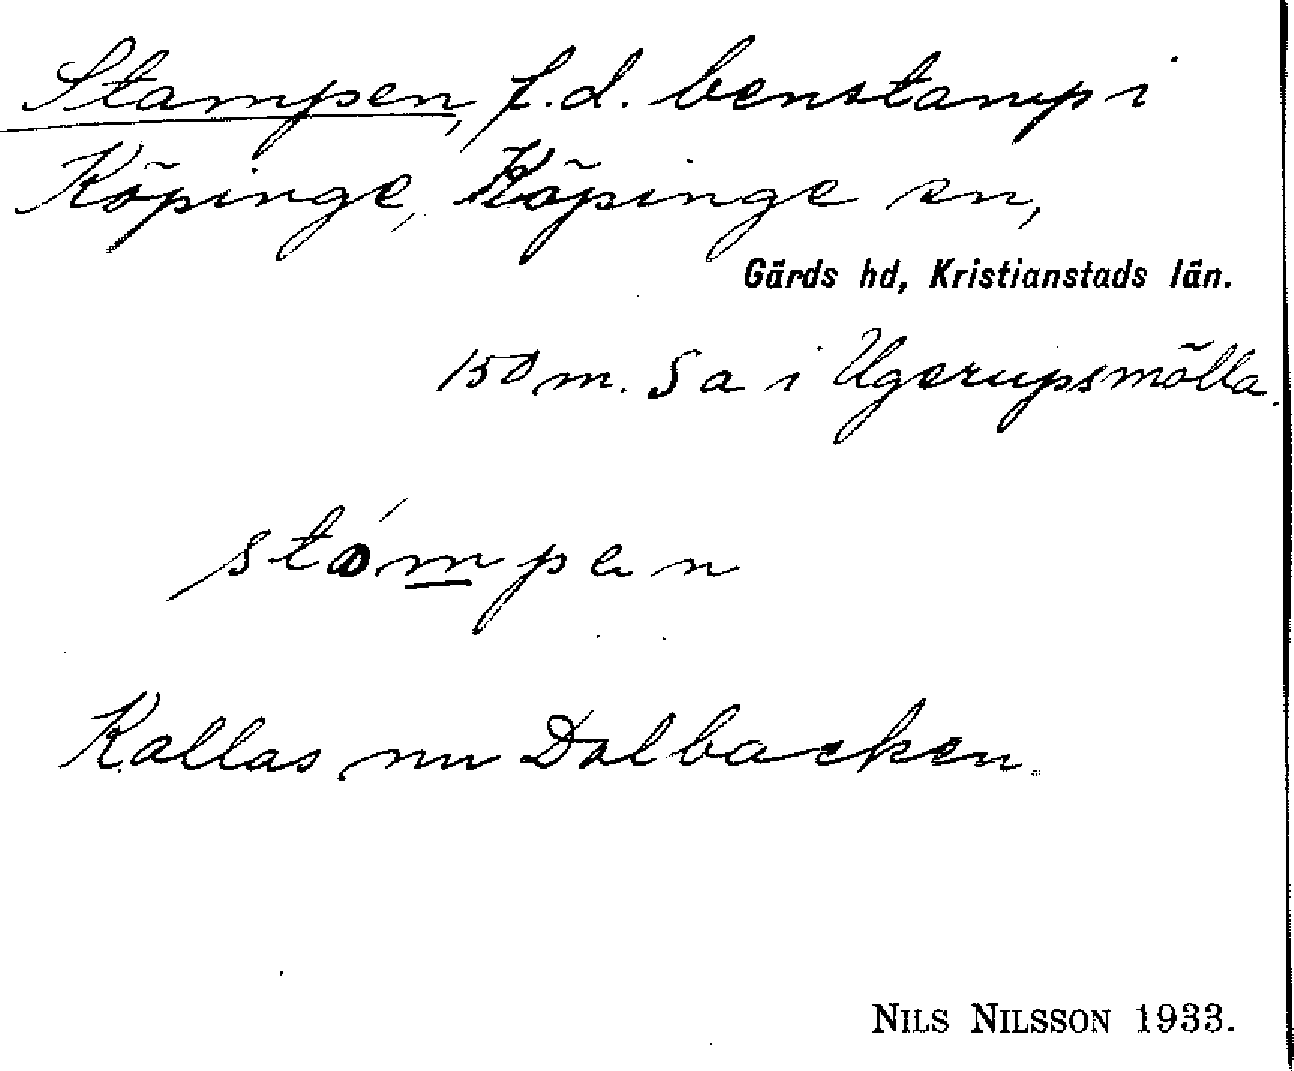 Stampen, f.d. benstamp i
Köpinge, Köpinge sn,
Gärds hd, Kristianstads län.
150 m. S a i Ugerupsmölla.
stámpen
Kallas nu Dalbacken.
NILS NILSSON 1933.